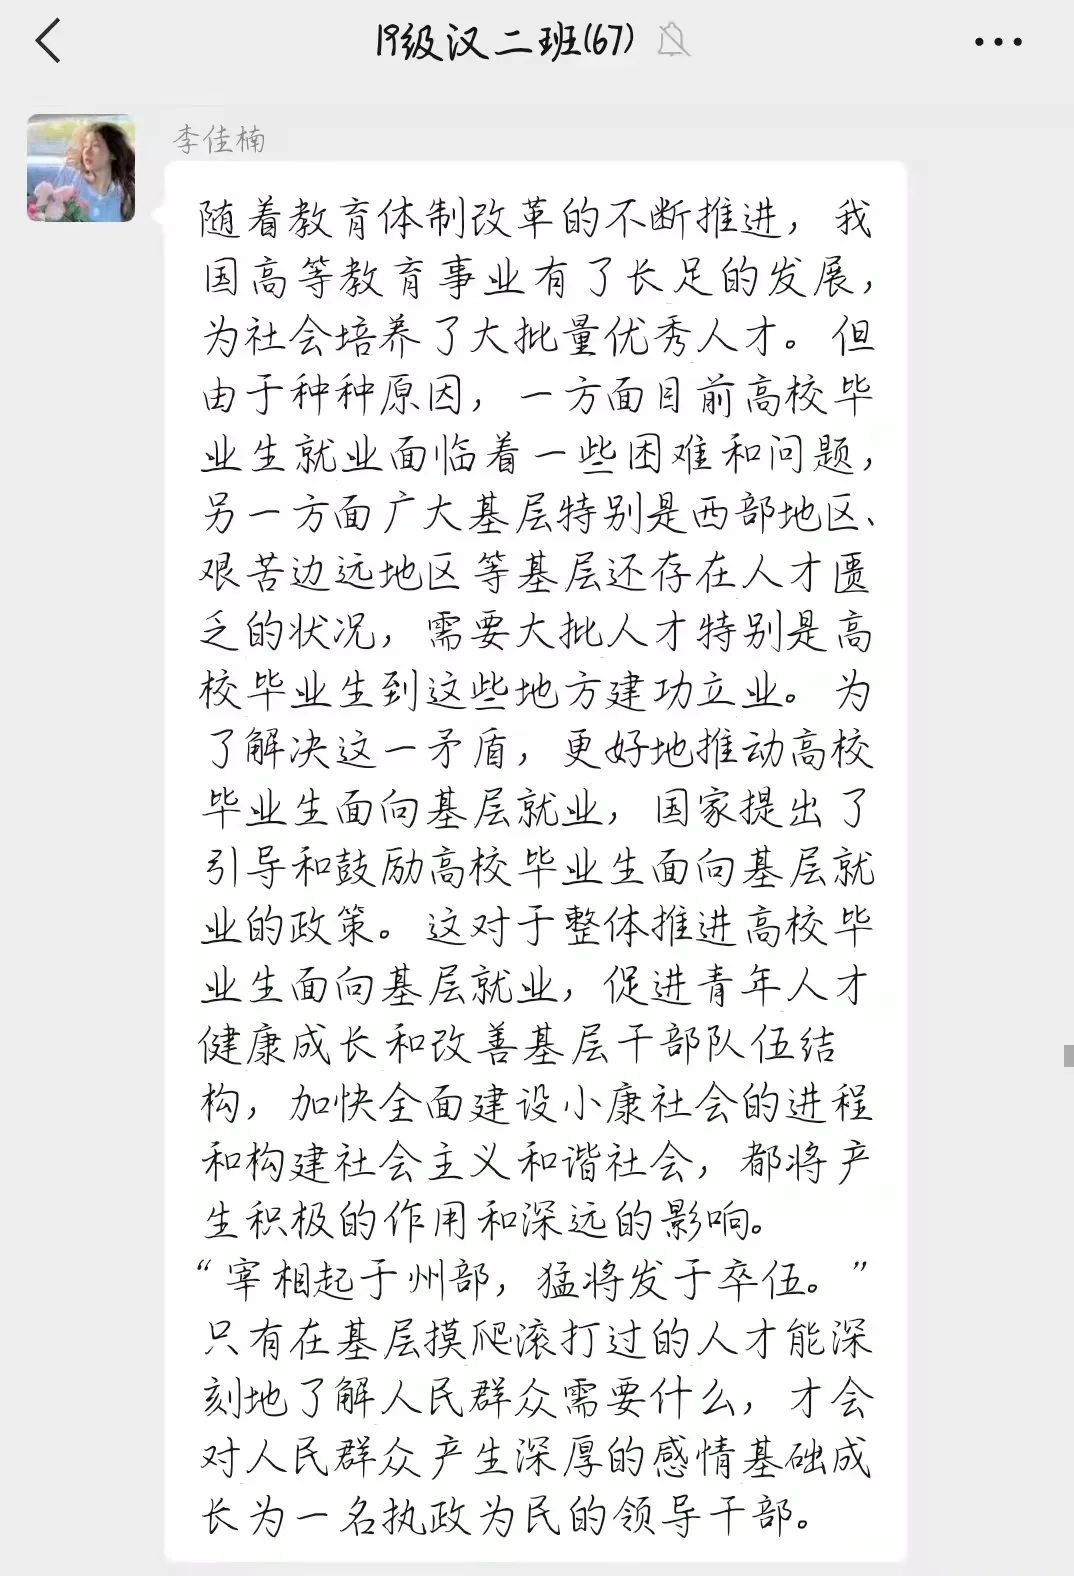 19级汉二班(67)
李佳楠
随着教育体制改革的不断推进，我
国高等教育事业有了长足的发展，
为社会培养了大批量优秀人才。但
由于种种原因，一方面目前高校毕
业生就业面临着一些困难和问题，
另一方面广大基层特别是西部地区、
艰苦边远地区等基层还存在人才匮
乏的状况，需要大批人才特别是高
校毕业生到这些地方建功立业。为
了解决这一矛盾，更好地推动高校
毕业生面向基层就业，国家提出了
引导和鼓励高校毕业生面向基层就
业的政策。这对于整体推进高校毕
业生面向基层就业，促进青年人才
健康成长和改善基层干部队伍结
构，加快全面建设小康社会的进程
和构建社会主义和谐社会，都将产
生积极的作用和深远的影响。
“宰相起于州部，猛将发于卒伍。”
只有在基层摸爬滚打过的人才能深
刻地了解人民群众需要什么，才会
对人民群众产生深厚的感情基础成
长为一名执政为民的领导干部。